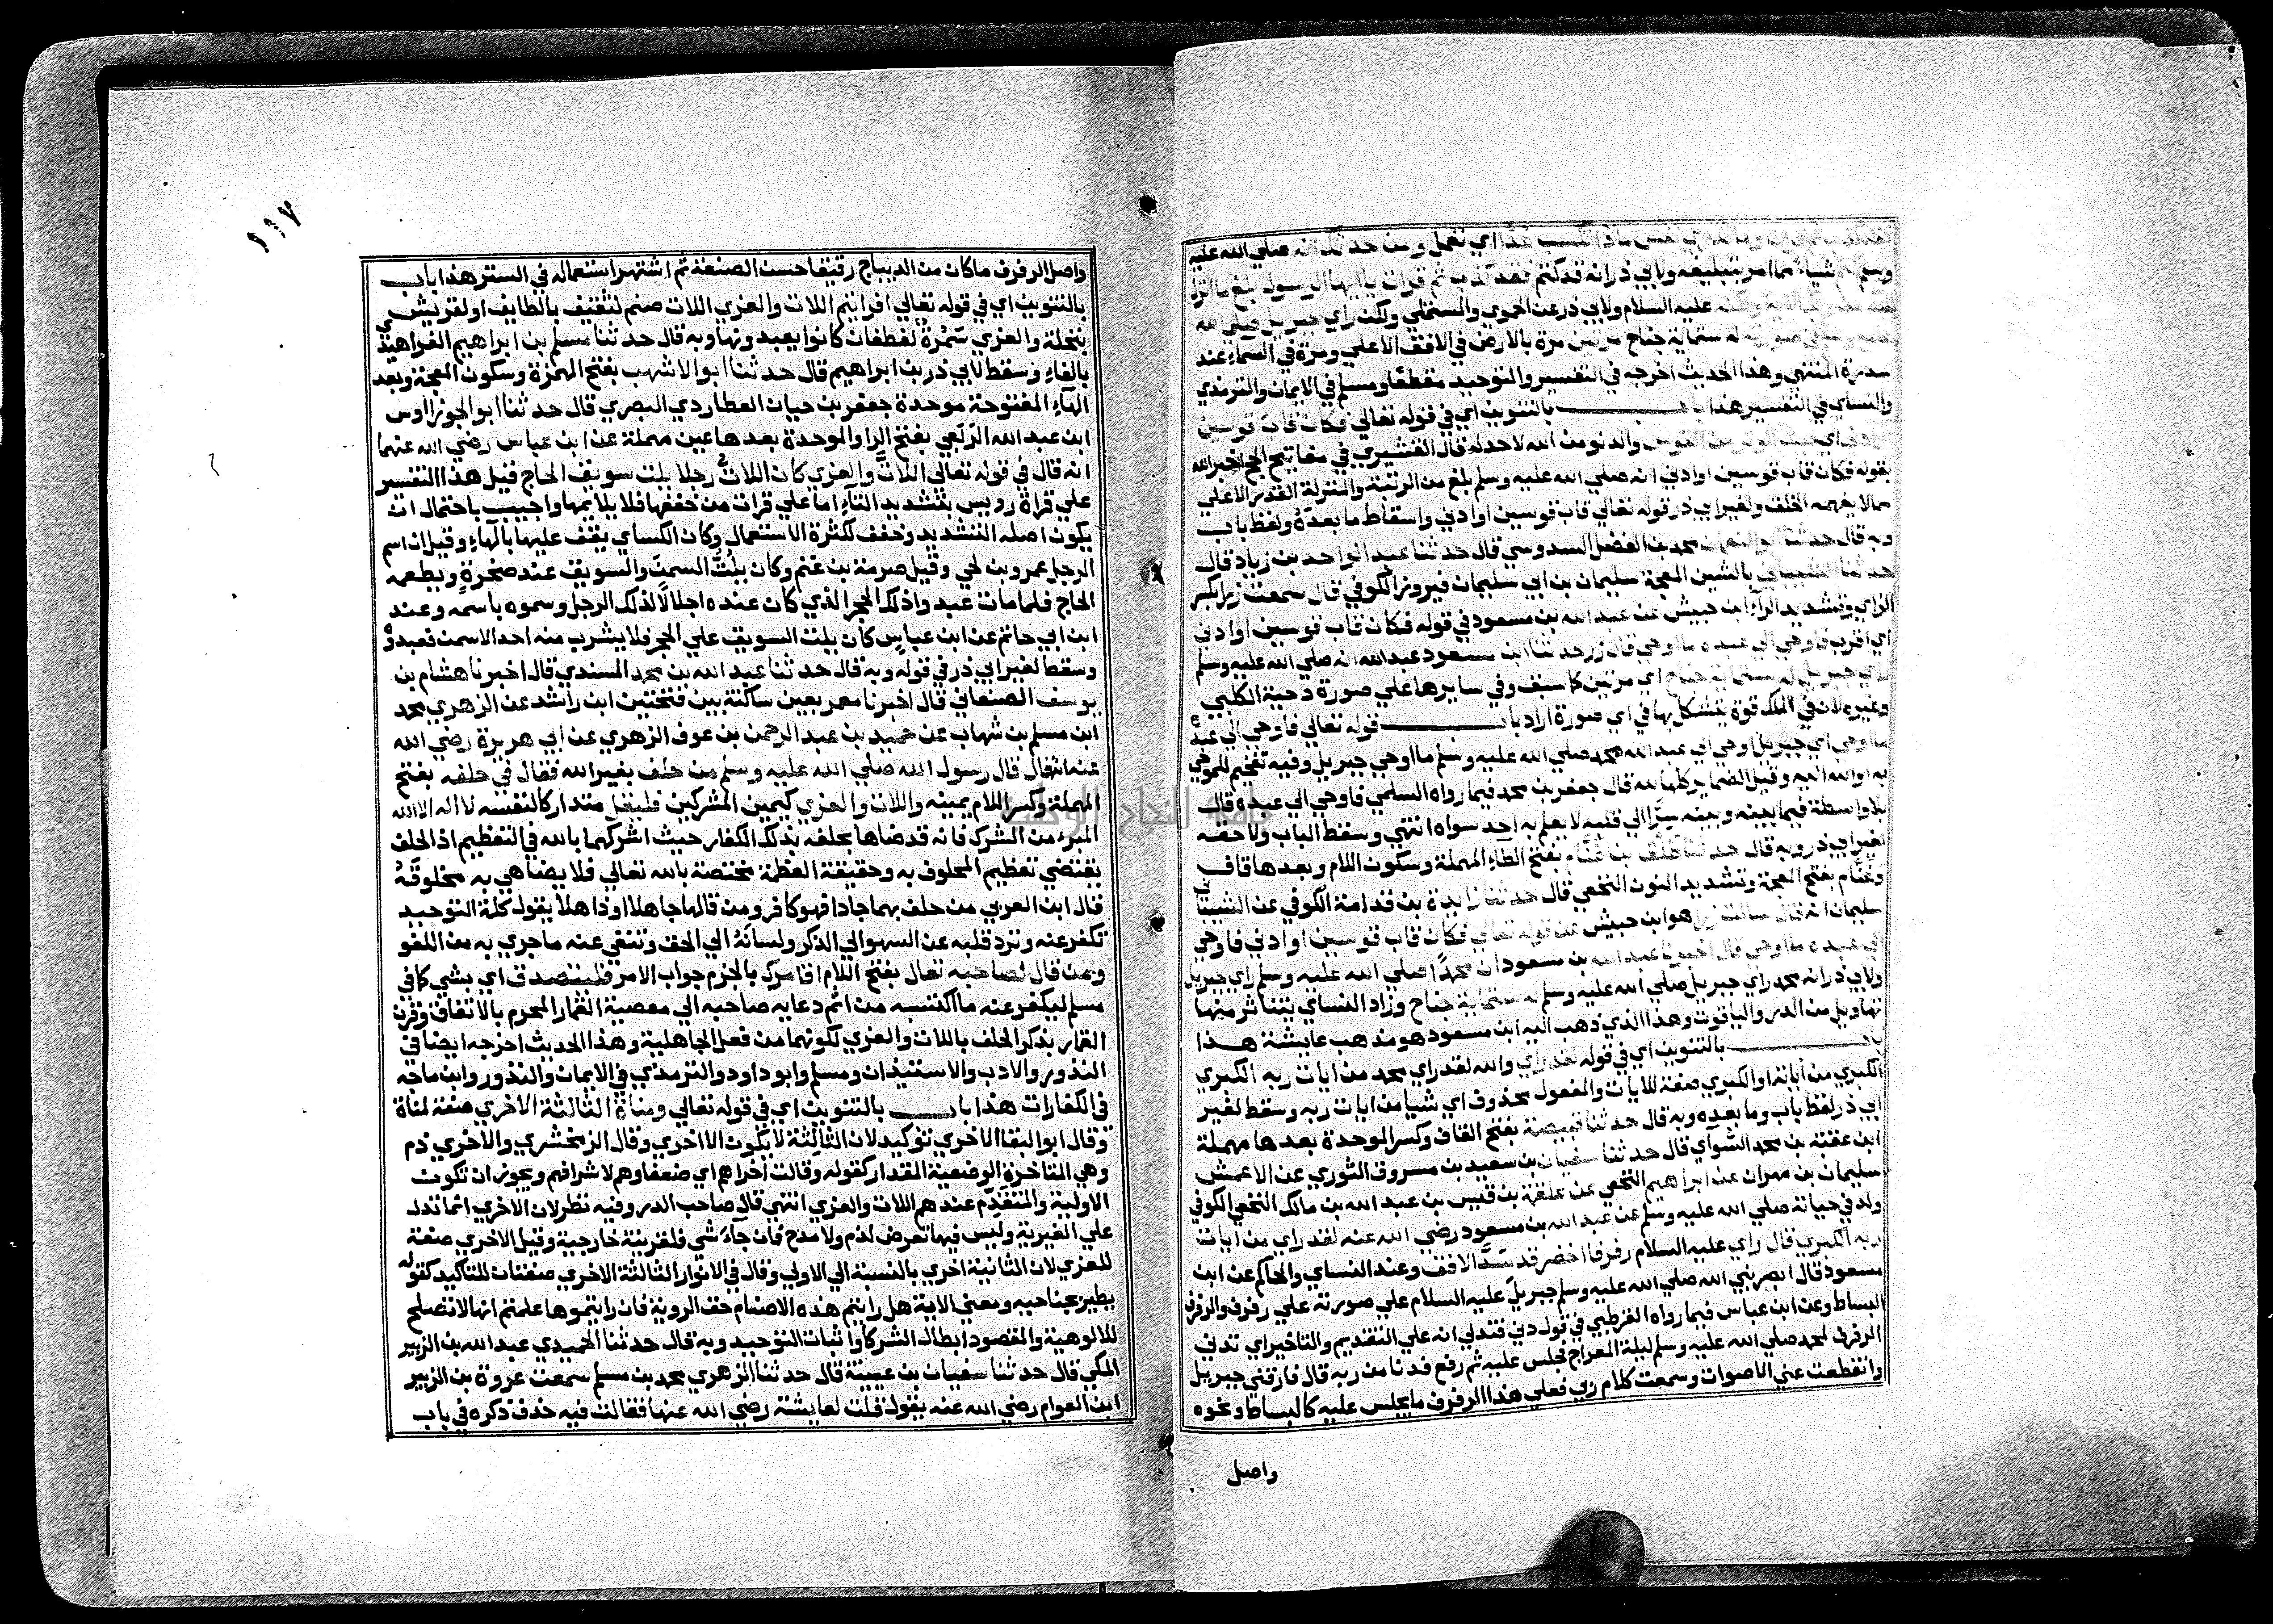 عليه السلام ولابي ذر عن الحموي والمستملي ولكن راي جبريل صلي الله
له ستماية جناح مرتين مرة بالارض في الافق الاعلي ومرة في السماء عند
سدرة المنتهي وهذا الحديث اخرجه في التفسير والتوحيد مقطعا ومسلم في الايمان والترمذي
والنساي في التفسير هذا باب بالتنوين اي في قوله تعالي فكان قاب قوسين
والدنو من الله لا حد له قال القشيري في مفاتيح الحجج اخبر الله
بقوله فكان قاب قوسين او ادني انه صلي الله عليه وسلم بلغ من الرتبة والمنزلة القدر الاعلي
مما لا يفهمه الخلف ولغير ابي ذر قوله تعالي قاب قوسين او ادني واسقاط ما بعده ولفظ باب
وبه قال حدثنا ابو النعمان محمد بن الفضل السدوسي قال حدثنا عبد الواحد بن زياد قال
حدثنا الشيباني بالشين المعجمة سليمان بن ابي سليمان فيروز الكوفي قال سمعت زرا بكسر
الزاي وتشديد الراء ابن حبيش عن عبد الله بن مسعود في قوله فكان قاب قوسين او ادني
اي اقرب فاوحي الي عبده ما اوحي قال زر حدثنا ابن مسعود عبد الله انه صلي الله عليه وسلم
راي جبريل له ستماية جناح اي مرتين كما سبق وفي سايرها علي صورة دحية الكلبي
وغيره لان في الملك قوة يتشكل بها في اي صورة اراد باب قوله تعالي فاوحي الي عبده
ما اوحي اي جبريل اوحي الي عبد الله محمد صلي الله عليه وسلم ما اوحي جبريل وفيه تفخيم للموحي
به او الله اليه وقيل الضماير كلها لله قال جعفر بن محمد فيما رواه السلمي فاوحي الي عبده قال
بلا واسطة فيما بينه وبينه سرا الي قلبه لا يعلم به احد سواه انتهي وسقط الباب ولاحقه
لغير ابي ذر وبه قال حدثنا طلق بن غنام بفتح الطاء المهملة وسكون اللام وبعدها قاف
وغنام بفتح المعجمة وتشديد النون النخعي قال حدثنا زايدة بن قدامة الكوفي عن الشيباني
سليمان انه قال سالت زرا هو ابن حبيش عن قوله تعالي فكان قاب قوسين او ادني فاوحي
الي عبده ما اوحي قال اخبرنا عبد الله بن مسعود ان محمدا صلي الله عليه وسلم راي جبريل
ولابي ذر انه محمد راي جبريل صلي الله عليه وسلم له ستماية جناح وزاد النساي يتناثر منها
تهاويل من الدر والياقوت وهذا الذي ذهب اليه ابن مسعود هو مذهب عايشة هذا
باب بالتنوين اي في قوله لقد راي والله لقد راي محمد من ايات ربه الكبري
الكبري من اياته او الكبري صفة للايات والمفعول محذوف اي شيا من ايات ربه وسقط لغير
ابي ذر لفظ باب وما بعده وبه قال حدثنا قبيصة بفتح القاف وكسر الموحدة بعدها مهملة
ابن عقبة بن محمد السوآي قال حدثنا سفيان بن سعيد بن مسروق الثوري عن الاعمش
سليمان بن مهران عن ابراهيم النخعي عن علقمة بن قيس بن عبد الله بن مالك النخعي الكوفي
ولد في حياته صلي الله عليه وسلم عن عبد الله بن مسعود رضي الله عنه لقد راي من ايات
ربه الكبري قال راي عليه السلام رفرفا اخضر قد سد الافق وعند النساي والحاكم عن ابن
مسعود قال ابصر نبي الله صلي الله عليه وسلم جبريل عليه السلام علي صورته علي رفرف والرفرف
البساط وعن ابن عباس فيما رواه القرطبي في قول دني فتدلي انه علي التقديم والتاخير اي تدلي
الرفرف لمحمد صلي الله عليه وسلم ليلة المعراج فجلس عليه ثم رفع فدنا من ربه قال فارقني جبريل
وانقطعت عني الاصوات وسمعت كلام ربي فعلي هذا الرفرف ما يجلس عليه كالبساط ونحوه
واصل
١٩٧
واصل الرفرف ما كان من الديباج رقيقا حسن الصنعة ثم اشتهر استعماله في الستر هذا باب
بالتنوين اي في قوله تعالي افرايتم اللات والعزي اللات صنم لثقيف بالطايف او لقريش
بنخلة والعزي سمرة لغطفان كانوا يعبدونها وبه قال حدثنا مسلم بن ابراهيم الفراهيدي
بالفاء وسقط لابي ذر بن ابراهيم قال حدثنا ابو الاشهب بفتح الهمزة وسكون المعجمة وبعد
الهاء المفتوحة موحدة جعفر بن حيان العطاردي البصري قال حدثنا ابو الجوزا اوس
ابن عبد الله الربعي بفتح الرا والموحدة بعدها عين مهملة عن ابن عباس رضي الله عنهما
انه قال في قوله تعالي اللات والعزي كان اللات رجلا يلت سويق الحاج قيل هذا التفسير
علي قراة رويس بتشديد التاء اما علي قرات من خففها فلا يلايمها واجيب باحتمال ان
يكون اصله التشديد وخفف لكثرة الاستعمال وكان الكساي يقف عليها بالهاء وقيل ان اسم
الرجل عمرو بن لحي وقيل صرمة بن غنم وكان يلت السمن والسويق عند صخرة ويطعمه
الحاج فلما مات عبدوا ذلك الحجر الذي كان عنده اجلالا لذلك الرجل وسموه باسمه وعند
ابن ابي حاتم عن ابن عباس كان يلت السويق علي الحجر فلا يشرب منه احد الا سمن فعبدوه
وسقط لغير ابي ذر في قوله وبه قال حدثنا عبد الله بن محمد المسندي قال اخبرنا هشام بن
يوسف الصنعاني قال اخبرنا معمر بعين ساكنة بين فتحتين ابن راشد عن الزهري محمد
ابن مسلم بن شهاب عن حميد بن عبد الرحمن بن عوف الزهري عن ابي هريرة رضي الله
عنه انه قال قال رسول الله صلي الله عليه وسلم من حلف بغير الله فقال في حلفه بفتح
المهملة وكسر اللام يمينه واللات والعزي كيمين المشركين فليقل متداركا لنفسه لا اله الا الله
المبرء من الشرك فانه قد ضاها بحلفه بذلك الكفار حيث اشركهما بالله في التعظيم اذ الحلف
يقتضي تعظيم المحلوف به وحقيقة العظمة مختصة بالله تعالي فلا يضاهي به مخلوقه
قال ابن العربي من حلف بهما جادا فهو كافر ومن قالها جاهلا او ذاهلا يقول كلة التوحيد
تكفر عنه وترد قلبه عن السهو الي الذكر ولسانه الي الحق وتنفي عنه ما جري به من اللغو
ومن قال لصاحبه تعال بفتح اللام اقامرك بالجزم جواب الامر فليتصدق اي بشي كما في
مسلم ليكفر عنه ما اكتسبه من اثم دعايه صاحبه الي معصية القمار المحرم بالاتفاق وقرن
القمار بذكر الحلف باللات والعزي لكونهما من فعل الجاهلية وهذا الحديث اخرجه ايضا في
النذور والادب والاستيذان ومسلم وابو داود والترمذي في الايمان والنذور وابن ماجه
في الكفارات هذا باب بالتنوين اي في قوله تعالي ومناة الثالثة الاخري صفة لمناة
وقال ابو البقا الاخري توكيد لان الثالثة لا يكون الا اخري وقال الزمخشري والاخري ذم
وهي المتاخرة الوضعية المقدار كقوله وقالت اخراهم اي ضعفاوهم لاشرافهم ويجوز ان تكون
الاولية والمتقدم عندهم اللات والعزي انتهي قال صاحب الدر وفيه نظر لان الاخري انما تدل
علي الغيرية وليس فيها تعرض لذم ولا مدح فان جاء شي فلقرينة خارجية وقيل الاخري صفة
للعزي لان الثانية اخري بالنسبة الي الاولي وقال في الانوار الثالثة الاخري صفتان للتاكيد كقوله
يطير بجناحيه ومعني الاية هل رايتم هذه الاصنام حق الروية فان رايتموها علمتم انها لا تصلح
للالوهية والمقصود ابطال الشركا واثبات التوحيد وبه قال حدثنا الحميدي عبد الله بن الزبير
المكي قال حدثنا سفيان بن عيينة قال حدثنا الزهري محمد بن مسلم سمعت عروة بن الزبير
ابن العوام رضي الله عنه يقول قلت لعايشة رضي الله عنها فقالت فيه حذف ذكره في باب
جامعة النجاح الوطنية